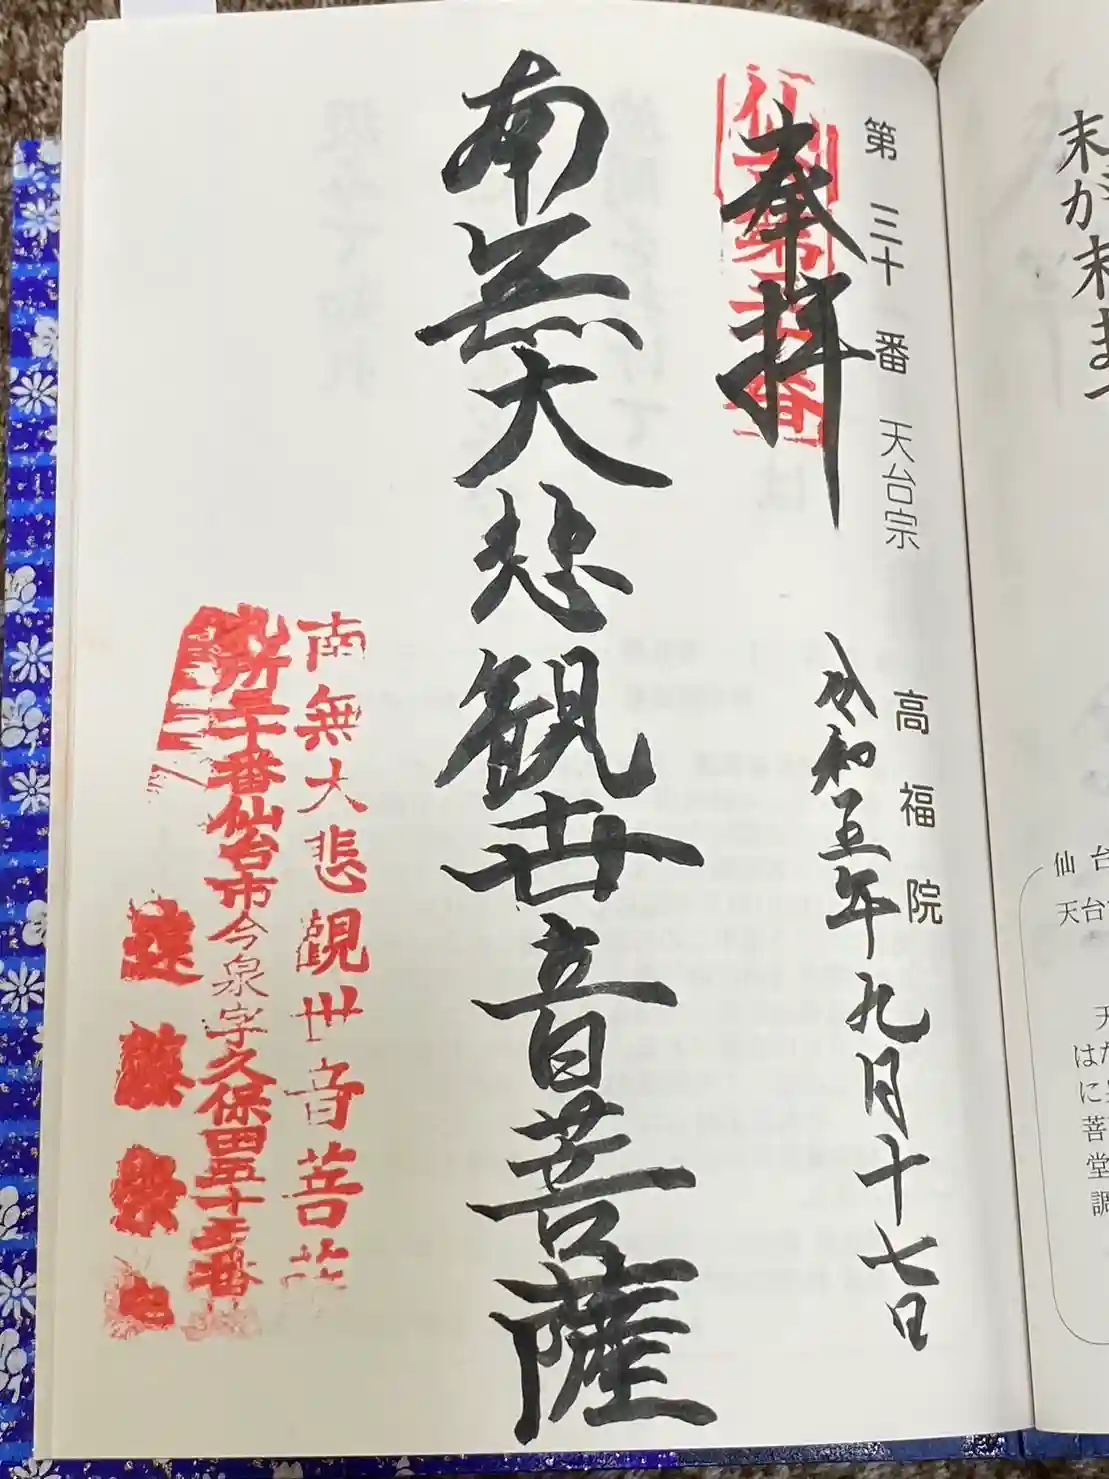 第三十番 天台宗 高福院
奉拝
令和五年九月十七日
南無大悲観世音菩薩
南無大悲觀世音菩
三十番仙台市今泉字久保四
末が末ま
仙台
天台
は
に
菩
堂
調